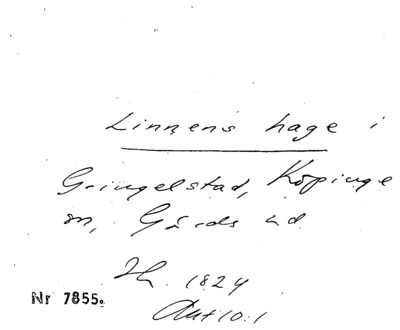 Linnens hage i
Gringelstad, Köpinge
sn, Gärds hd
1824
Nr 7855.
Akt 10:1